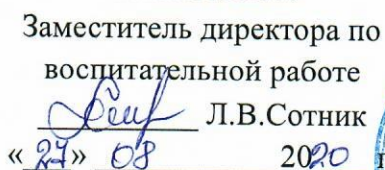 Заместитель директора по
воспитательной работе
Л.В.Сотник
«27» 08 2020 г